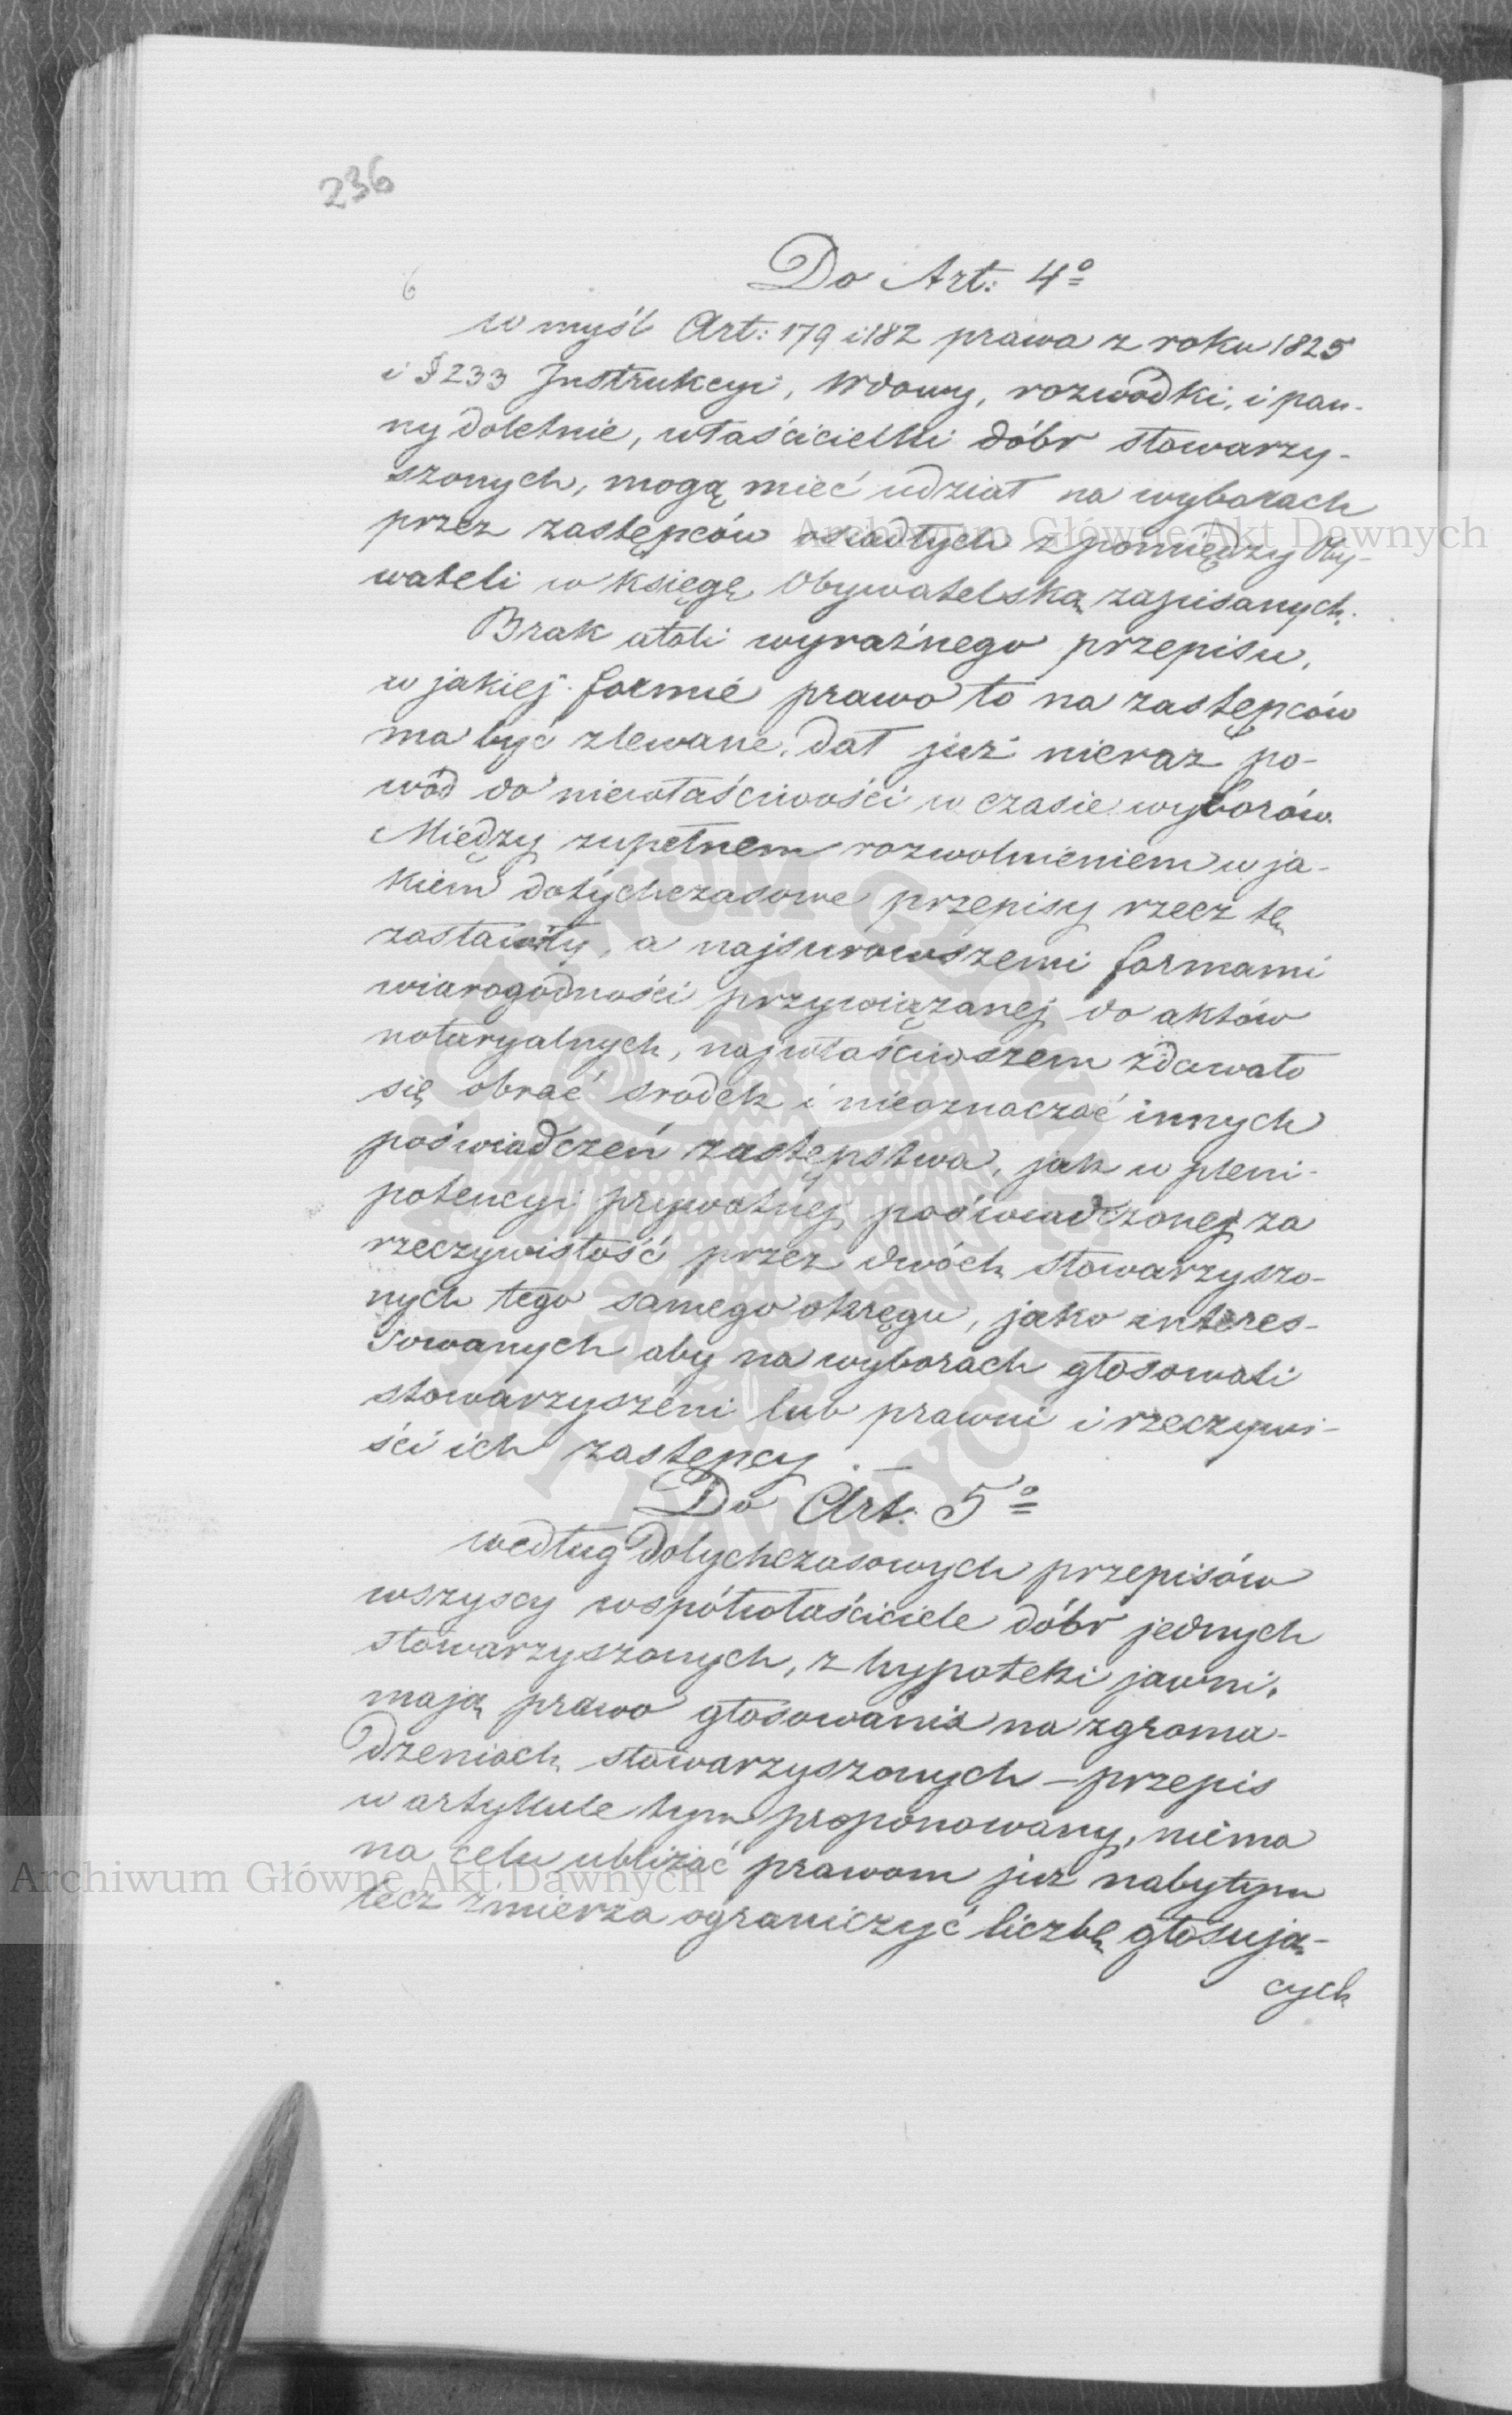 236
6
Do Art: 4º
w myśl Art: 179 i 182 prawa z roku 1825
i § 233 Instrukcyi, Wdowy, rozwódki, i pan-
ny doletnie, właścicielki dóbr stowarzy-
szonych, mogą mieć udział na wyborach
przez zastępców osiadłych z pomiędzy Oby-
wateli w księgę Obywatelską zapisanych.
Brak atoli wyraźnego przepisu,
w jakiej formie prawo to na zastępców
ma być zlewane, dał już nieraz po-
wód do niewłaściwości w czasie wyborów.
Między zupełnem rozwolnieniem w ja-
kiem dotychczasowe przepisy rzecz tę
zostawiły, a najsurowszemi formami
wiarogodności przywiązanej do aktów
notaryalnych, najwłaściwszem zdawało
się obrać srodek i nieoznaczać innych
poświadczeń zastępstwa, jak w pleni-
potencyi prywatnej poświadczonej za
rzeczywistość przez dwóch stowarzyszo-
nych tego samego okręgu, jako interes-
sowanych aby na wyborach głosowali
stowarzyszeni lub prawni i rzeczywi-
ści ich zastępcy.
Do Art. 5º
według dotychczasowych przepisów
wszyscy współwłaściciele dóbr jednych
stowarzyszonych, z hypoteki jawni,
mają prawo głosowania na zgroma-
dzeniach stowarzyszonych – przepis
w artykule tym proponowany, niema
na celu ubliżać prawom już nabytym
lecz zmierza ograniczyć liczbę głosują-
cych
Archiwum Główne Akt Dawnych
Archiwum Główne Akt Dawnych
ARCHIWUM GŁÓWNE AKT DAWNYCH